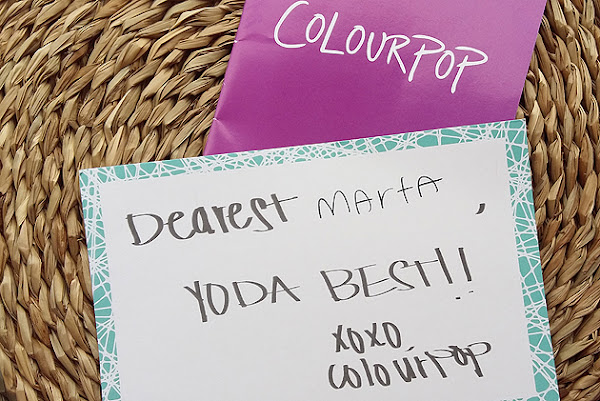 COLOURPOP
Dearest Marta,
YODA BEST!!
xoxo,
colourpop